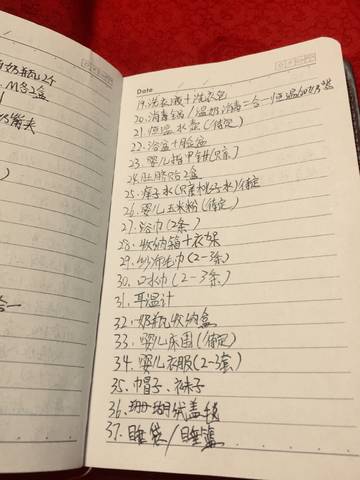 奶瓶2个
2盒
奶嘴夹
Date
19.洗衣液+洗衣皂
20.消毒锅/温奶消毒二合一恒温
21.恒温水壶(待定)
22.浴盆+脸盆
23.婴儿指甲钳(只亲)
24.肚脐贴2盒
25.痱子水(只亲桃子水)待定
26.婴儿玉米粉(待定)
27.浴巾(2条)
28.收纳箱+衣架
29.纱布毛巾(2-3条)
30.口水巾(2-3条)
31.耳温计
32.奶瓶收纳盒
33.婴儿床围(待定)
34.婴儿衣服(2-3套)
35.帽子、袜子
36.珊瑚绒盖毯
37.睡袋/睡篮